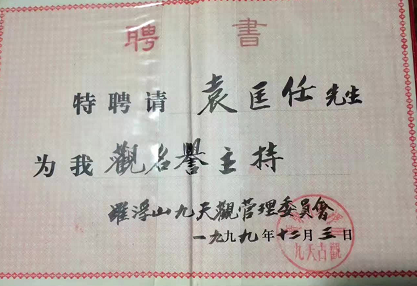 聘書
特聘请 袁匡任 先生
为我 觀名譽主持
羅浮山九天觀管理委員會
一九九九年十二月三日
九天古觀